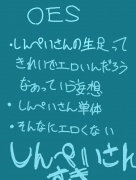 OES
・しんぺいさんの生足って
きれいでエロいんだろう
なあっていう妄想
・しんぺいさん単体
・そんなにエロくない
しんぺいさん
すき